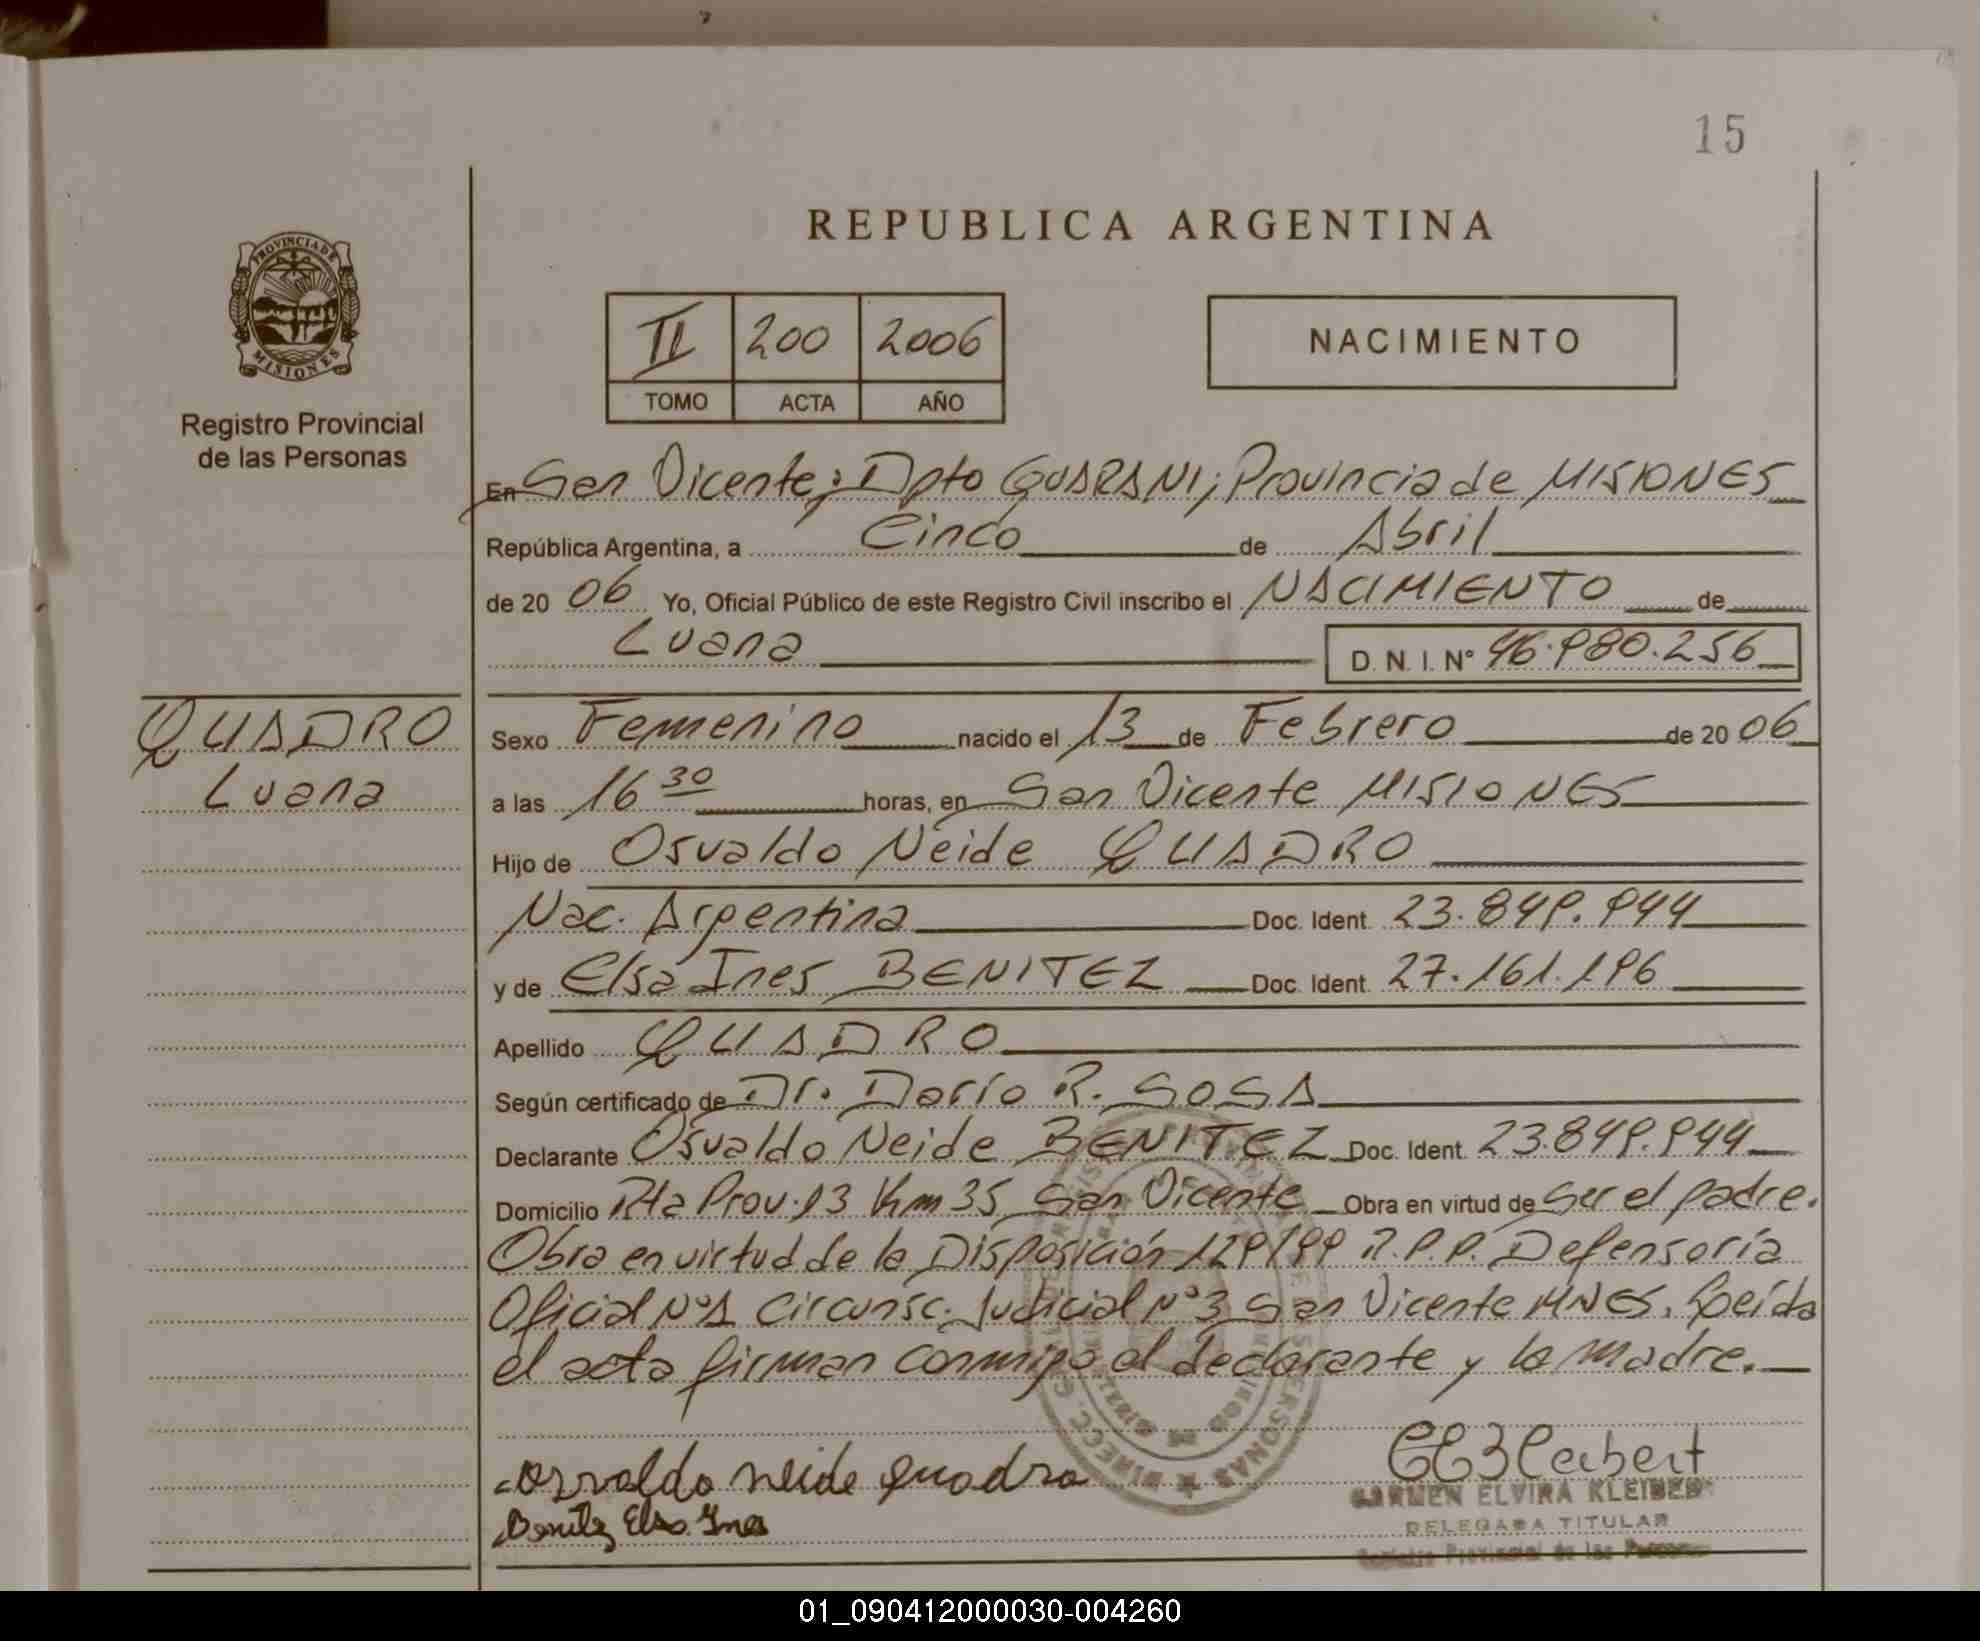 15
REPUBLICA ARGENTINA
PROVINCIA DE
MISIONES
Registro Provincial
de las Personas
II 200 2006
TOMO ACTA AÑO
NACIMIENTO
En San Vicente; Dpto GUARANI; Provincia de MISIONES
República Argentina, a Cinco de Abril
de 20 06 Yo, Oficial Público de este Registro Civil inscribo el NACIMIENTO de
Luana D. N. I. N° 46.980.256
QUADRO
Luana
Sexo Femenino nacido el 13 de Febrero de 20 06
a las 16 30 horas, en San Vicente MISIONES
Hijo de Osvaldo Neide QUADRO
Nac. Argentina Doc. Ident. 23.849.944
y de Elsa Ines BENITEZ Doc. Ident. 27.161.196
Apellido QUADRO
Según certificado de Dr. Darío R. SOSA
Declarante Osvaldo Neide BENITEZ Doc. Ident. 23.849.944
Domicilio Rta Prov. 13 Km 35 San Vicente Obra en virtud de ser el padre.
Obra en virtud de la Disposición 129/99 R.P.P. Defensoría
Oficial N°1 Circunsc. Judicial N°3 San Vicente MNES. Leída
el acta firman conmigo el declarante y la madre.
Osvaldo neide quadro
Benitez Elsa Ines
CARMEN ELVIRA KLEIBERT
DELEGADA TITULAR
Registro Provincial de las Personas
01_090412000030-004260